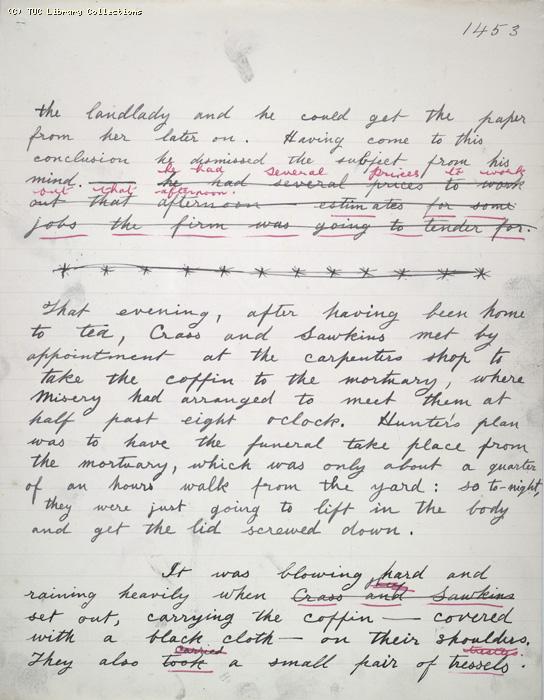 (C) TUC Library Collections
1453
the landlady and he could get the paper
from her later on. Having come to this
conclusion he dismissed the subject from his
he had several prices to work
mind. — he had several prices to work
out that afternoon.
out that afternoon estimates for some
jobs the firm was going to tender for.
That evening, after having been home
to tea, Crass and Sawkins met by
appointment at the carpenters shop to
take the coffin to the mortuary, where
Misery had arranged to meet them at
half past eight oclock. Hunter's plan
was to have the funeral take place from
the mortuary, which was only about a quarter
of an hours walk from the yard: so to-night,
they were just going to lift in the body
and get the lid screwed down.
It was blowing hard and
they
raining heavily when Crass and Sawkins
set out, carrying the coffin — covered
with a black cloth — on their shoulders.
carried
They also took a small pair of tressels.